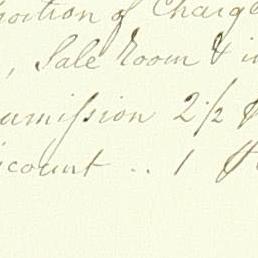 portion of Charge
, Sale Room & i
ommission 2 1/2 
iscount .. 1